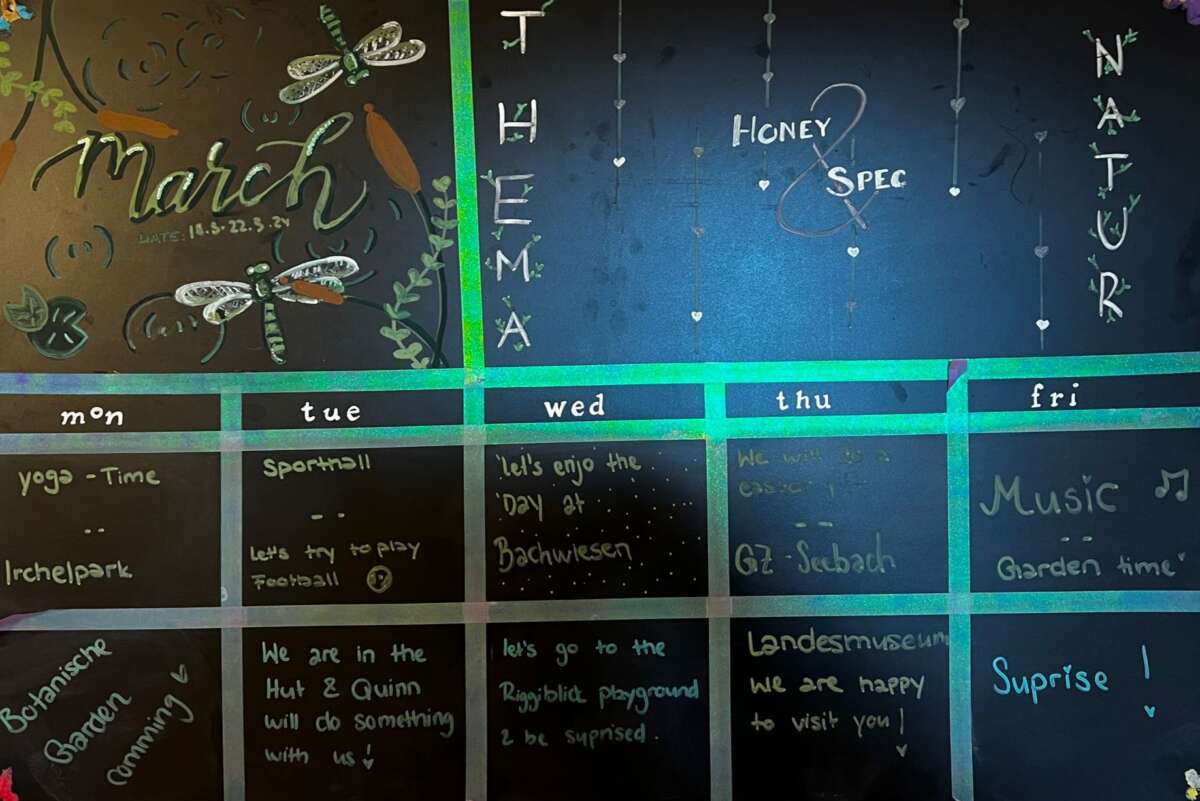 March
DATE: 18.3-22.3.24
THEMA
HONEY
&
SPEC
NATUR
mon
tue
wed
thu
fri
yoga - Time
--
Irchelpark
Sporthall
--
Let's try to play
Football
'Let's enjo the
'Day at
Bachwiesen
We will do a
easter
--
GZ - Seebach
Music
--
Garden time
Botanische
Garden
comming
We are in the
Hut & Quinn
will do something
with us!
let's go to the
Riggiblick playground
& be suprised.
Landesmuseum
we are happy
to visit you!
Suprise !